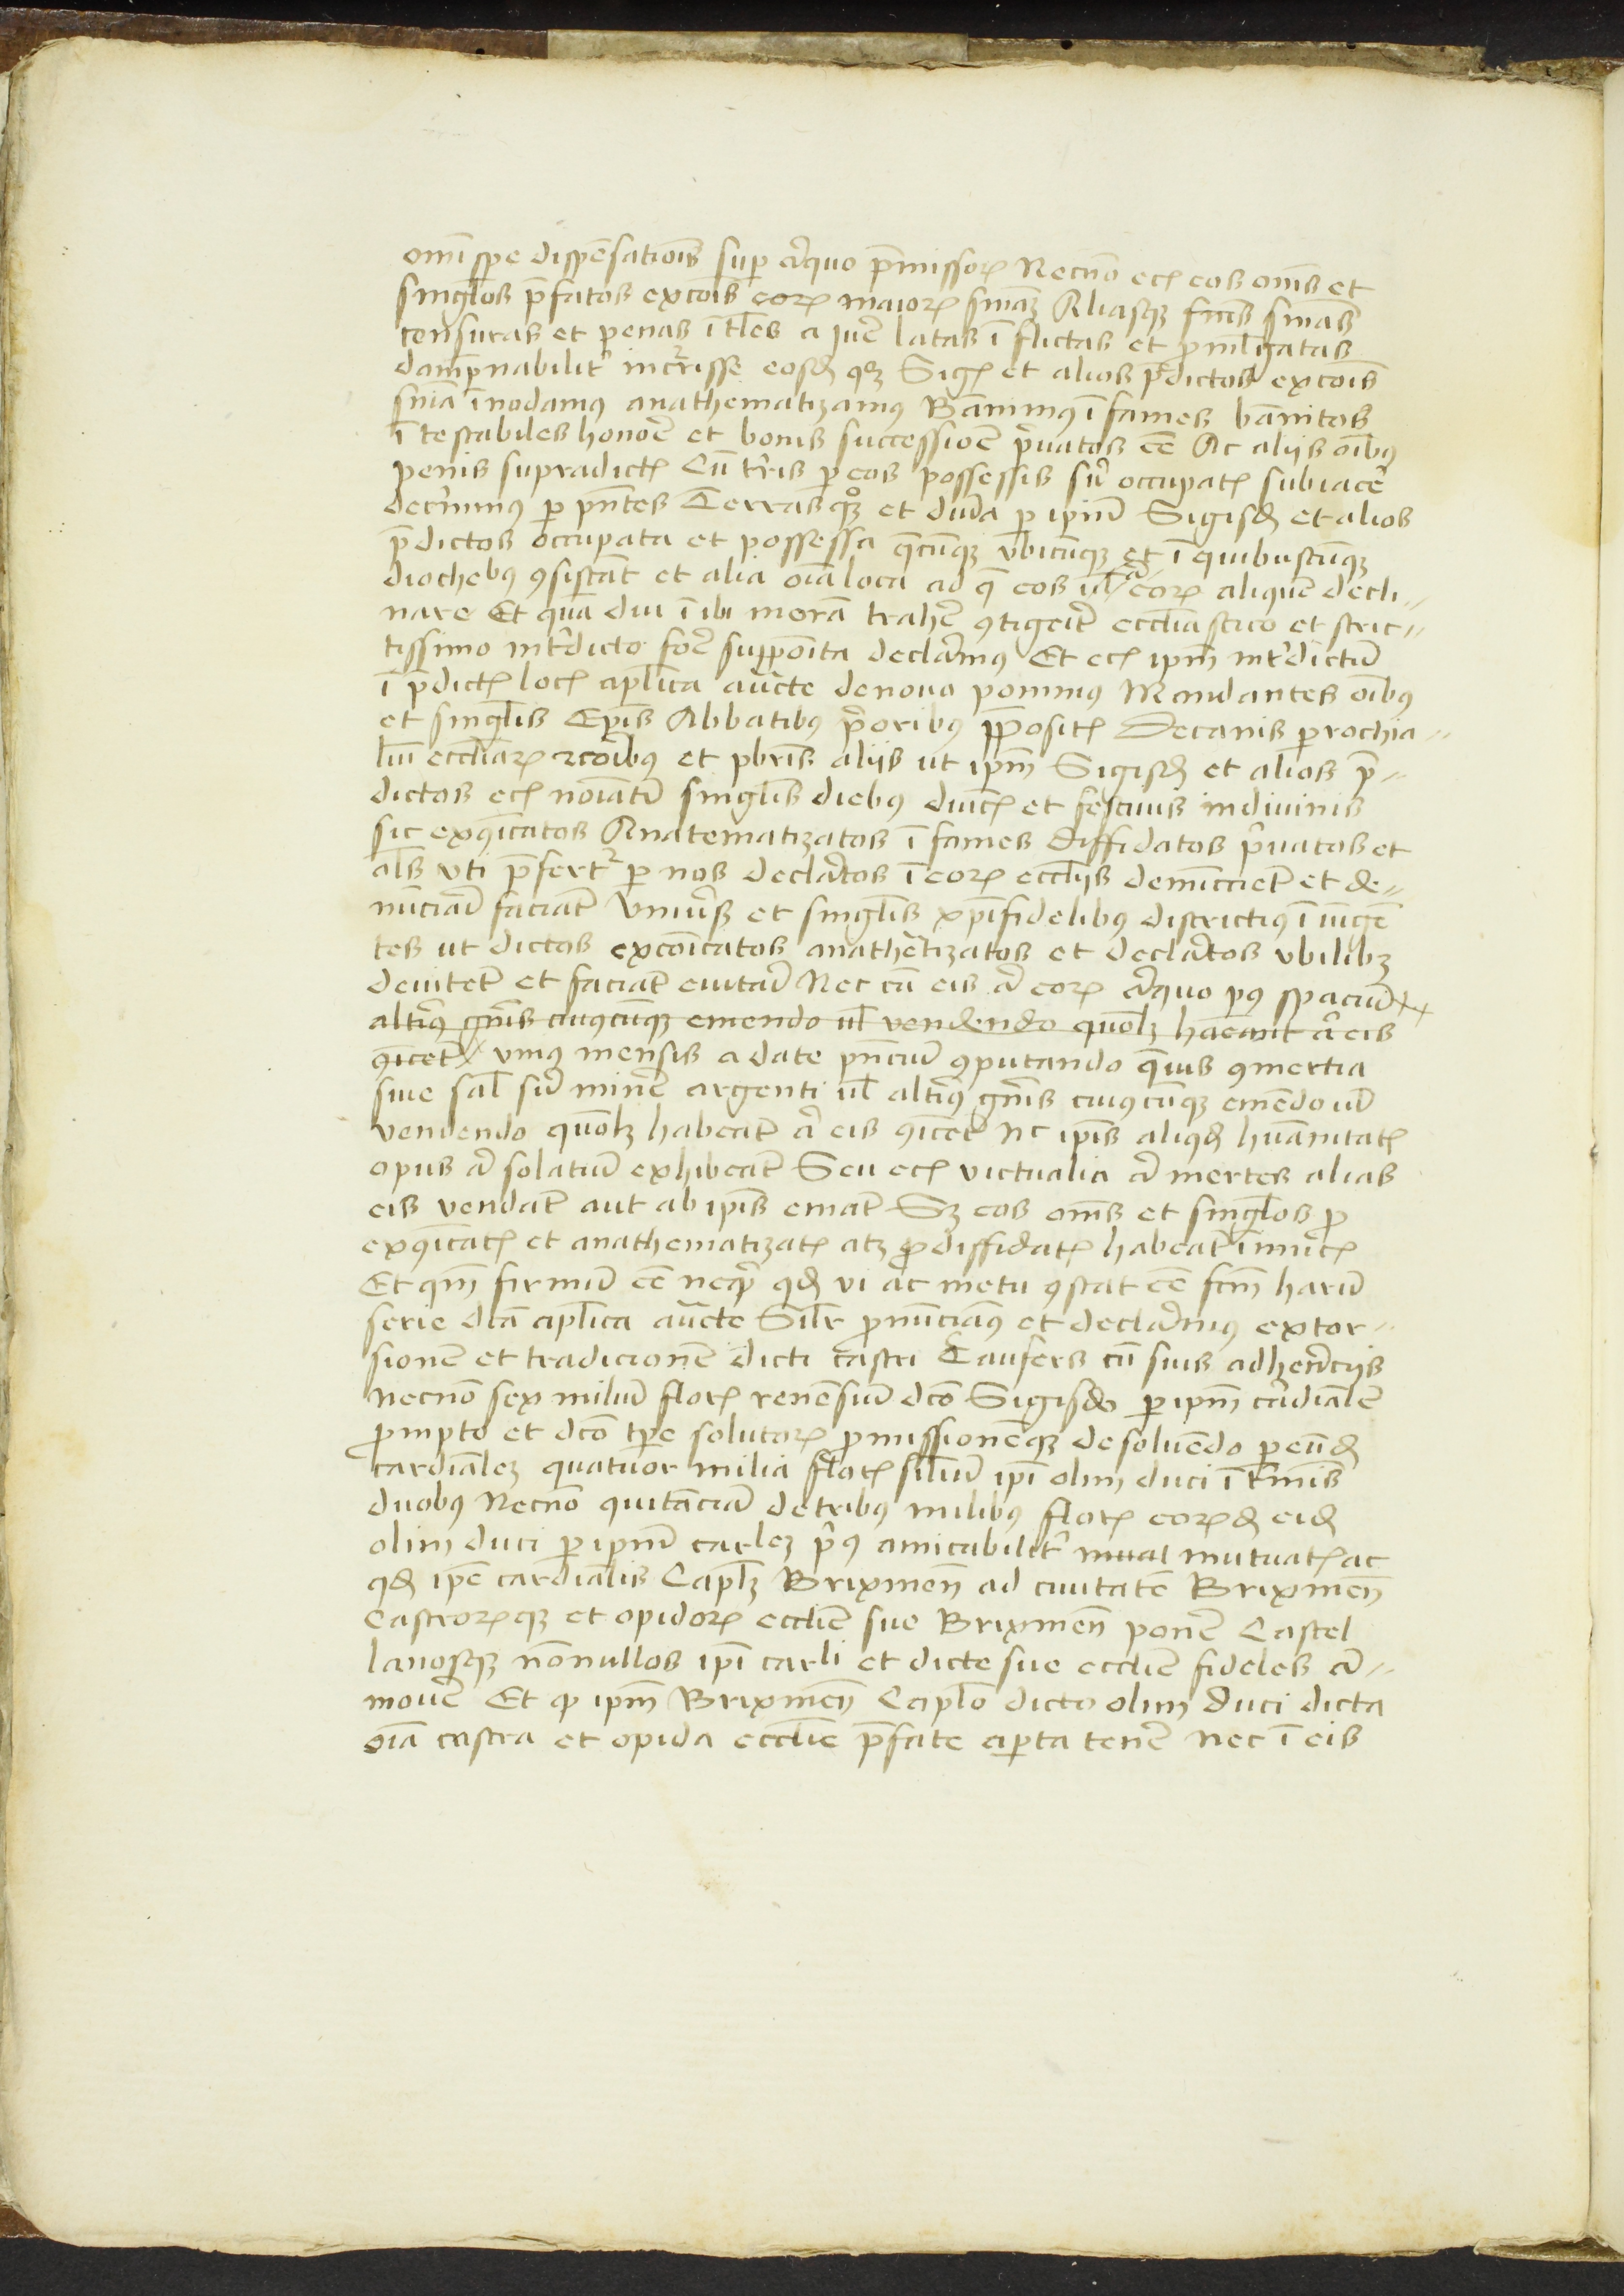 om̄i spe dispēsatiōis sup aliquo p̄missoꝝ Necnō ecꝫ eos om̄s et
singlos p̄fatos excōis eoꝝ maioꝝ sniaꝫ Aliasqꝫ snias
censuras et penas ī tles a jure latas ī flictas et promlgatas
damp̄nabilitr incrrisse eosdꝫ qꝫ Sigꝫ et alios p̄dictos excōis
snīa īnodamꝰ anathematizamꝰ Bānimꝰ ī fames bānitos
ī testabiles honore et bonis successiōe p̄uatos eē Ac alijs oībꝰ
penis supradictꝫ Cū tris p eos possessis siu occupatꝫ subiacē
decrnimꝰ p pn̄tes Terrasqꝫ et duda p ip̄m Sigisdꝫ et alios
p̄dictos occupata et possessa qcūqꝫ vbicūqꝫ et ī quibuscūqꝫ
diochebꝰ ꝯsistāt et alia oīa loca ad q eos ul eoꝝ aliquē decli„
nare Et qua diu ī ibi morā trahē ꝯtigeit eccliastico et stric„
tissimo intrdicto fore suppoīta declaramꝰ Et ecꝫ ip̄m intrdictū
ī p̄dictꝫ locꝫ aplica aucte denouo ponimꝰ Mandantes oībꝰ
et singlis Epīs Abbatibꝰ p̄oribꝰ p̄positꝫ Decanis parrochia„
liū eccliaꝝ rcōibꝰ et pbris alijs ut ip̄m Sigisdꝫ et alios p̄„
dictos ecꝫ noīatī singlis diebꝰ dnicꝫ et festiuis in diuinis
sic exꝯīcatos Anatematizatos ī fames diffidatos p̄uatos et
als vti p̄fertr p nos declaratos ī eoꝝ ecclijs denūcciet et de„
nūciari faciāt Vniuersꝫ et singlis xp̄ifidelibꝰ districtiꝰ ī iūgē
tes ut dictos excōicatos anathetizatos et declaratos vbilibꝫ
deuitēt et faciāt euitari Nec cū eis aut eoꝝ aliquo pꝰ spaciū
altiꝰ gnis cuiꝰcūqꝫ emendo ul vendendo quolꝫ habeant aut eis
ꝯīcēt vniꝰ mensis a date pn̄ciū ꝯputando quis ꝯmertia
siue sal siu minē argenti ul altiꝰ gnis cuiꝰcūqꝫ emēdo ul
vendendo quolꝫ habeāt aut eis ꝯīcēt Nec ip̄is aliqdꝫ hūanitatꝫ
opus aut solatiū exhibeāt Seu ecꝫ victualia aut merces alias
eis vendāt aut ab ip̄is emāt Sꝫ eos om̄s et singlos p
exꝯīcatꝫ et anathematizatꝫ atꝫ pro diffidatꝫ habeāt inimicꝫ
Et qm̄ firmū eē neqꝫ qdꝫ vi ac metu ꝯstat eē scm̄ harū
serie dcā aplica aucte Silr pronūciamꝰ et declaramꝰ extor„
sionē et tradicionē dicti castri Taufers cū suis adherēcijs
necnō sex miliū florꝫ renēsiū dco Sigisdo p ip̄m cardialē
prompto et dco tpe solutoꝝ promissionēqꝫ de soluēdo p eūdꝫ
cardialeꝫ quatuor milia florꝫ siliū ip̄i olim duci ī tminis
duobꝰ Necnō quitāciā de tribꝰ milibꝰ florꝫ eoꝝdꝫ eidꝫ
olim duci p ip̄m carleꝫ p̄ꝰ amicabilitr muat mutuatꝫ ac
qdꝫ ip̄e cardialis Caplꝫ Brixinen̄ ad ciuitatē Brixinen̄
Castroꝝqꝫ et opidoꝝ ecclie sue Brixinen̄ ponē Castel
lanosqꝫ nōnullos ip̄i carli et dicte sue ecclie fideles a„
mouē Et qp ip̄m Brixinen̄ Caplo dicto olim duci dicta
oīa castra et opida ecclie p̄fate apta tenē nec ī eis